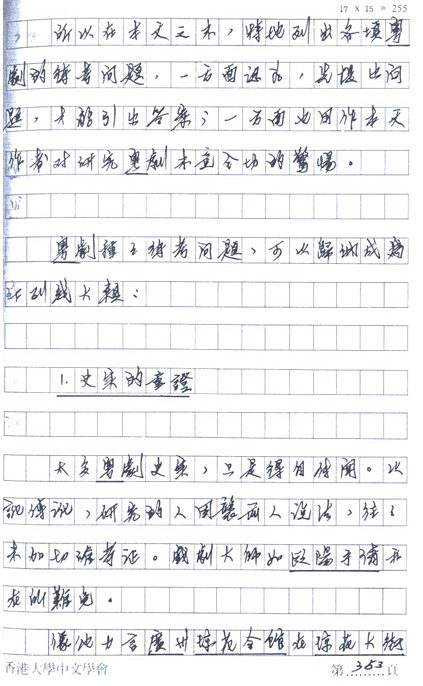 17 X 15 = 255
所以在本文之末，特地列出各項粵
劇的待考問題，一方面認為，先提出問
題，才能引出答案；一方面也用作本文
作者对研究粵劇未立全功的警惕。
粵劇種之待考問題，可以歸納成為
下列幾大類：
1. 史实的查證
太多粵劇史实，只是得自传聞。以
訛傳訛，研究的人固然人人說法，往々
未加切確考证。戲劇大師如歐陽予倩亦
在所難免。
像他也言廣州瓊花会館在瓊花大街
香港大學中文學會
第 353 頁